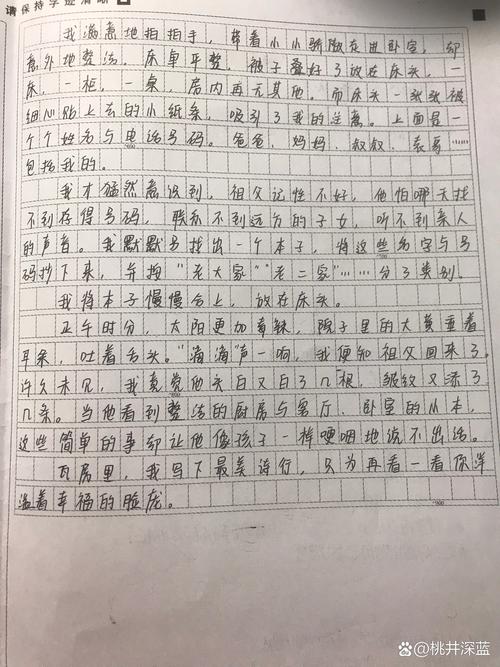 请保持字迹清晰
我满意地拍拍手，带着小小骄傲走进卧室，却
意外地整洁。床单平整，被子叠好了放在床头，一
床，一柜，一桌，房内再无其他。而床头一张张被
细心贴上去的小纸条，吸引了我的注意。上面是一
个个姓名与电话号码。爸爸，妈妈，叔叔，表哥……
包括我的。
我才猛然意识到，祖父记性不好，他怕哪天找
不到存得号码，联系不到远方的子女，听不到亲人
的声音。我默默另找出一个本子，将这些名字与号
码抄下来，并按"老大家""老二家"……分了类别。
我将本子慢慢合上，放在床头。
正午时分，太阳更加毒辣，院子里的大黄垂着
耳朵，吐着舌头。"滴滴"声一响，我便知祖父回来了。
许久未见，我竟觉他头白又白了几根，皱纹又添了
几条。当他看到整洁的厨房与客厅，卧室的小本，
这些简单的事却让他像孩子一样哽咽地说不出话。
瓦房里，我写下最美诗行，只为再看一看你洋
溢着幸福的脸庞。
百家号@桃井深蓝